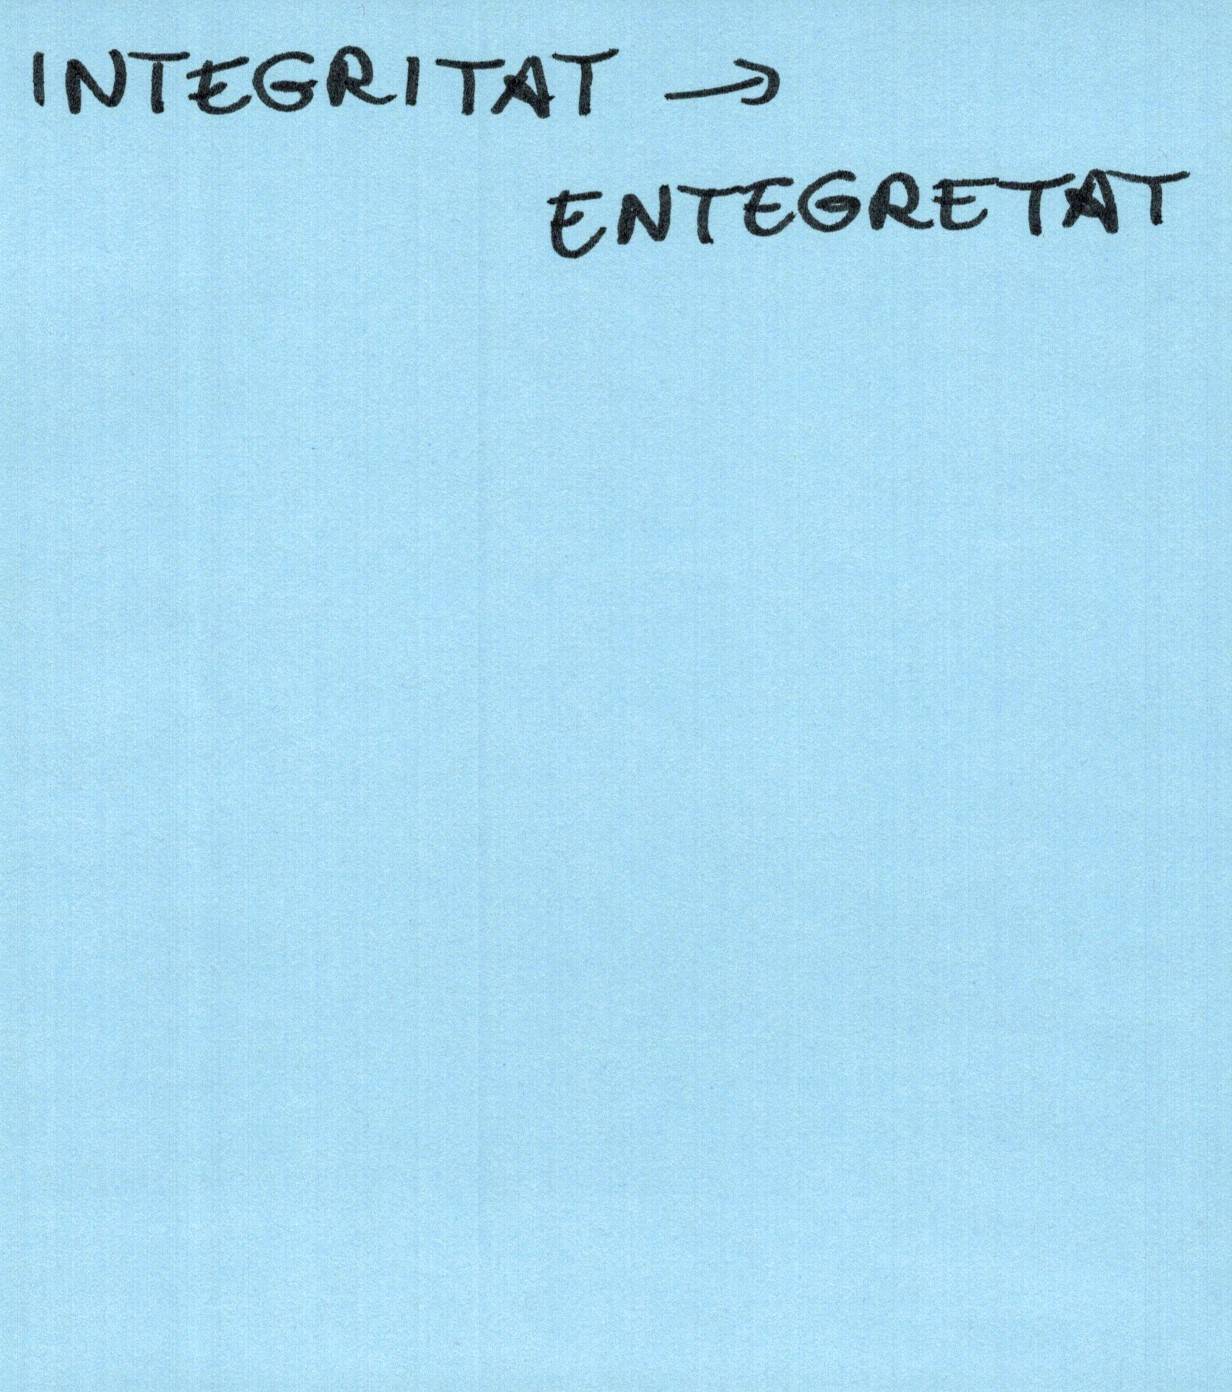 INTEGRITAT →
ENTEGRETAT